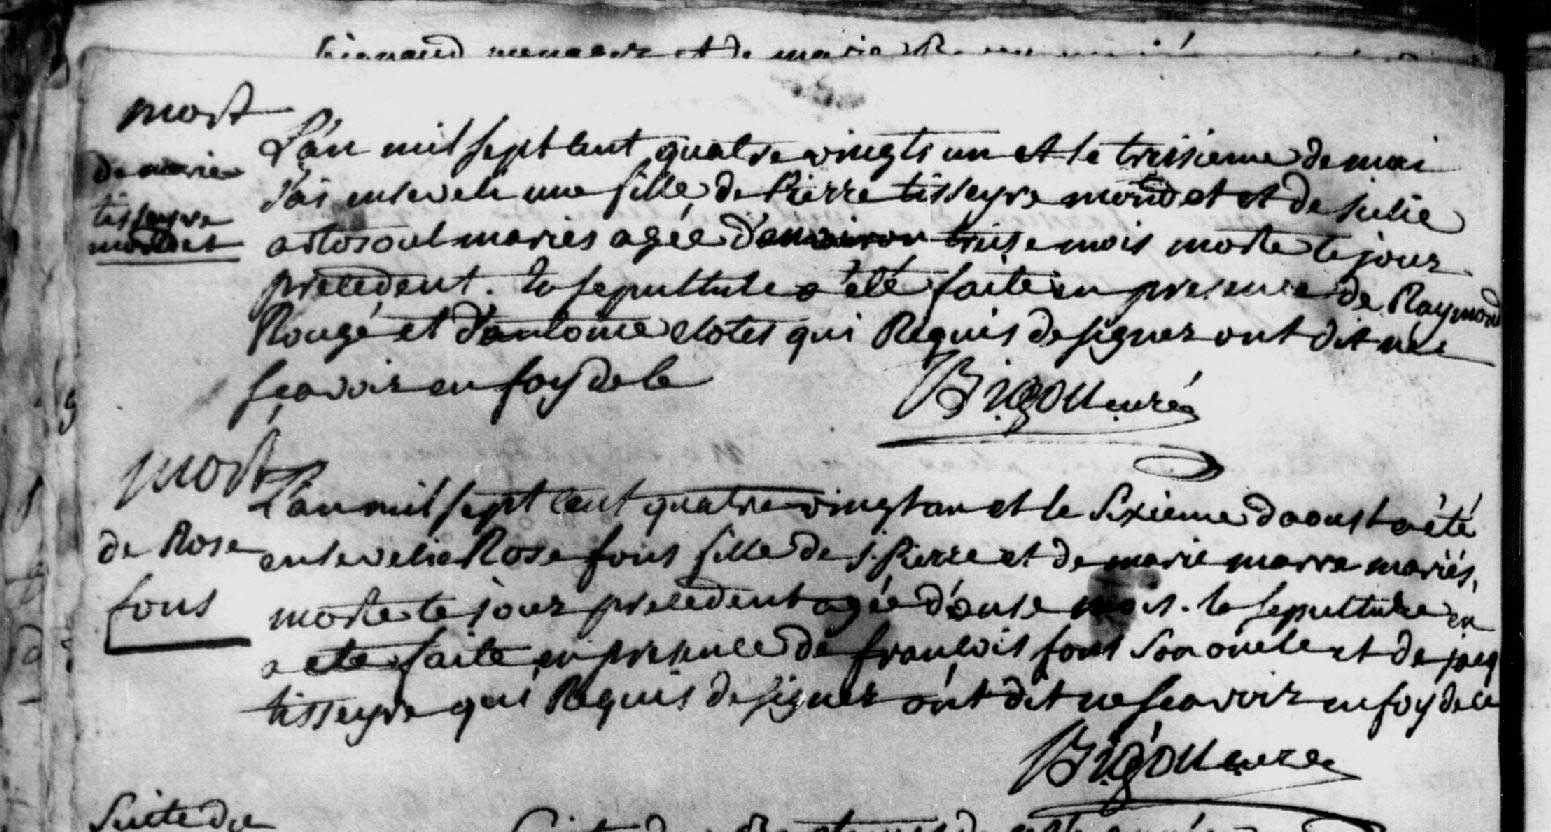 mort
de marie
tisseyre
mondet
L'an mil sept cent quatre vingts un et le treisieme de mai
J'ai enseveli une fille de Pierre tisseyre mondet et de julie
mariés agée d'anviron treise mois morte le jour
precedent. la sepulture a été faite en presence de Raymond
Rougé et d'antoine clotes qui Requis de signer ont dit ne
sçavoir en foy de ce
Bigou curé
mort
de Rose
fons
L'an mil sept cent quatre vingt un et le sixieme daoust a été
ensevelie Rose fons fille de j. Pierre et de marie marre mariés,
morte le jour precedent agée d'onse mois. la sepulture en
a eté faite en presence de françois fons son oncle et de jacq
tisseyre qui Requis de signer ont dit ne scavoir en foy de ce
Bigou curé
Suite de